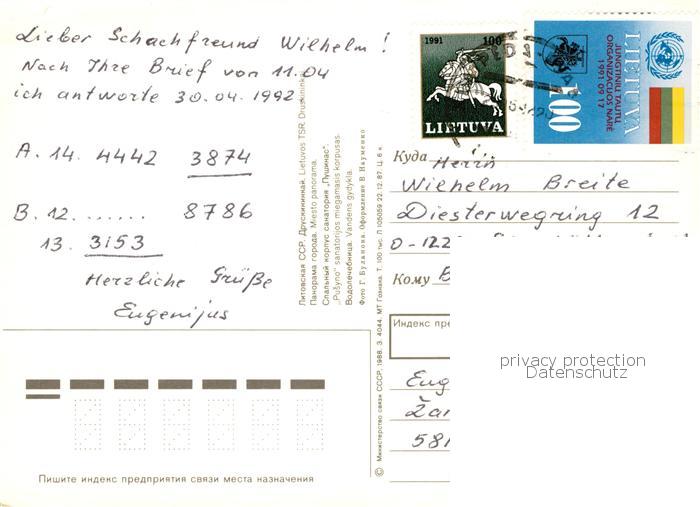 Lieber Schachfreund Wilhelm!
Nach Ihre Brief von 11.04
ich antworte 30.04.1992
A. 14. 4442 3874
B. 12. ...... 8786
13. 3153
Herzliche Grüße
Eugenijus
Пишите индекс предприятия связи места назначения
Литовская ССР. Друскининкай. Lietuvos TSR. Druskininkai
Панорама города. Miesto panorama.
Спальный корпус санатория „Пушинас".
„Pušyno" sanatorijos miegamasis korpusas.
Водолечебница. Vandens gydykla.
Фото Г. Буланова. Оформление В. Науменко
© Министерство связи СССР. 1988. З. 4044. МТ Гознака. Т. 100 тыс. Л 105059 22.12.87. Ц. 6 к.
1991 100
LIETUVA
100
JUNGTINIŲ TAUTŲ
ORGANIZACIJOS NARĖ
1991 09 17
LIETUVA
Куда Herrn
Wilhelm Breite
Diesterwegring 12
Кому B
Индекс пре
privacy protection
Datenschutz
Eug
Žar
581